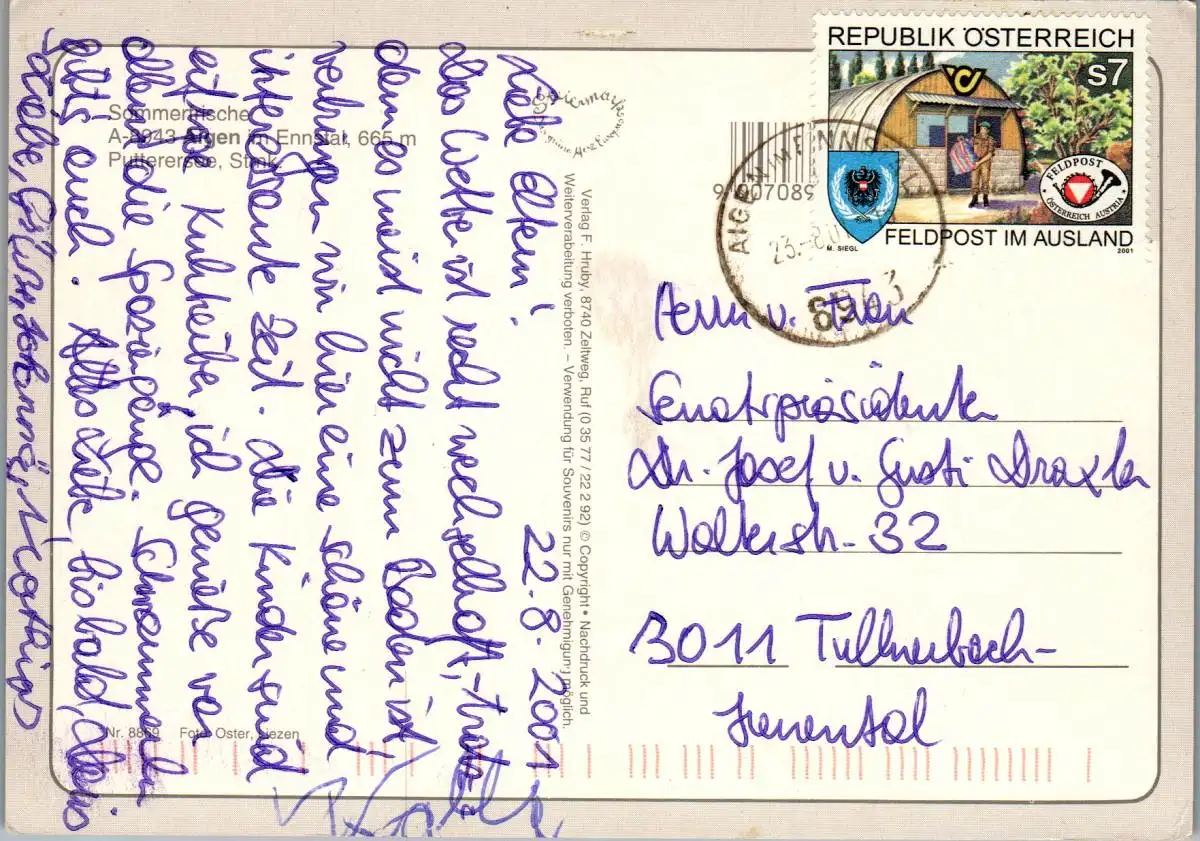 Sommerfrische
A-8943 Aigen im Ennstal, 665 m
Putterersee, Stmk.
22.8.2001
Liebe Eltern!
Das Wetter ist recht wechselhaft, trotz-
dem es meist nicht zum Baden ist
verbringen wir hier eine schöne und
interessante Zeit. Die Kinder sind
eifrige Kuhtreiber, ich genieße vor
allem die Spaziergänge. Schwammerln
gibts auch. Alles Liebe, bis bald,
Liebe Grüße, Johanna, Mathias
Nr. 8869 Foto: Oster, Liezen
Steiermark
Verlag F. Hruby, 8740 Zeltweg, Ruf (0 35 77 / 22 2 92) © Copyright • Nachdruck und
Weiterverarbeitung verboten. – Verwendung für Souvenirs nur mit Genehmigung möglich.
REPUBLIK ÖSTERREICH
S7
FELDPOST
ÖSTERREICH AUSTRIA
M. SIEGL
FELDPOST IM AUSLAND
2001
9 007089
AIGEN IM ENNSTAL
23.-8.
8943
Herrn u. Frau
Senatspräsidenten
Dr. Josef u. Gusti Draxler
Walterstr. 32
3011 Tullnerbach-
Irenental